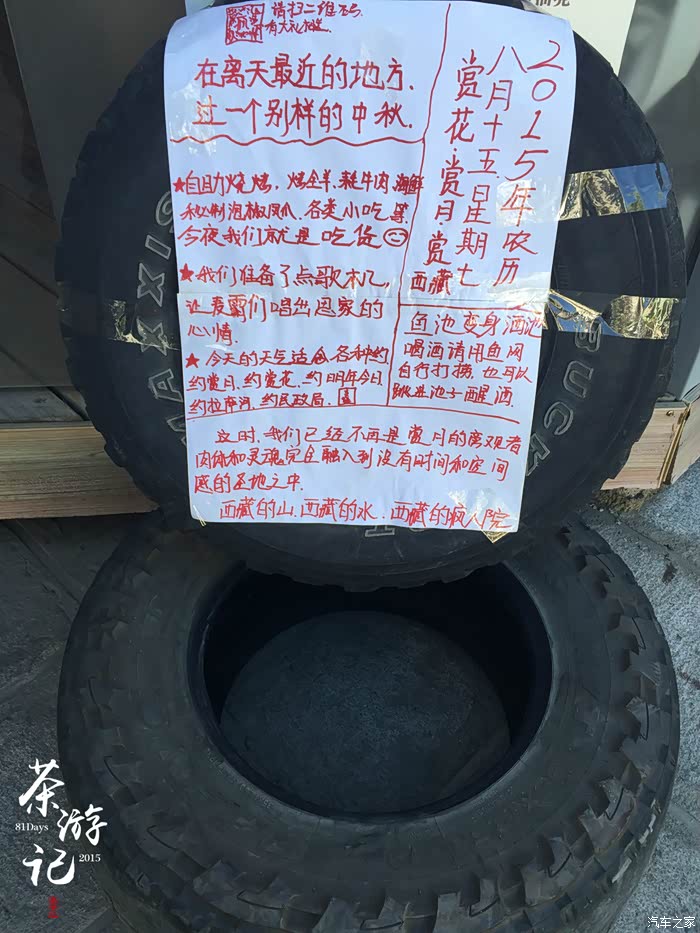 请扫二维码
有大礼相送
在离天最近的地方
过一个别样的中秋.
★自助烧烤，烤全羊、耗牛肉、海鲜
秘制泡椒凤爪、各类小吃等
今夜我们就是吃货
★我们准备了点歌机，
让麦霸们唱出思家的
心情.
★今天的天气适合各种约
约赏月、约赏花、约明年今日
约拉萨河、约民政局.
2015年农历
八月十五星期七
赏花·赏月赏西藏
鱼池变身酒池
喝酒请用鱼网
自行打捞.也可以
跳进池子醒酒.
这时.我们已经不再是赏月的旁观者
肉体和灵魂完全融入到没有时间和空间
感的圣地之中.
西藏的山.西藏的水.西藏的疯人院
MAXXIS
BUCK
茶游记
81Days
2015
汽车之家